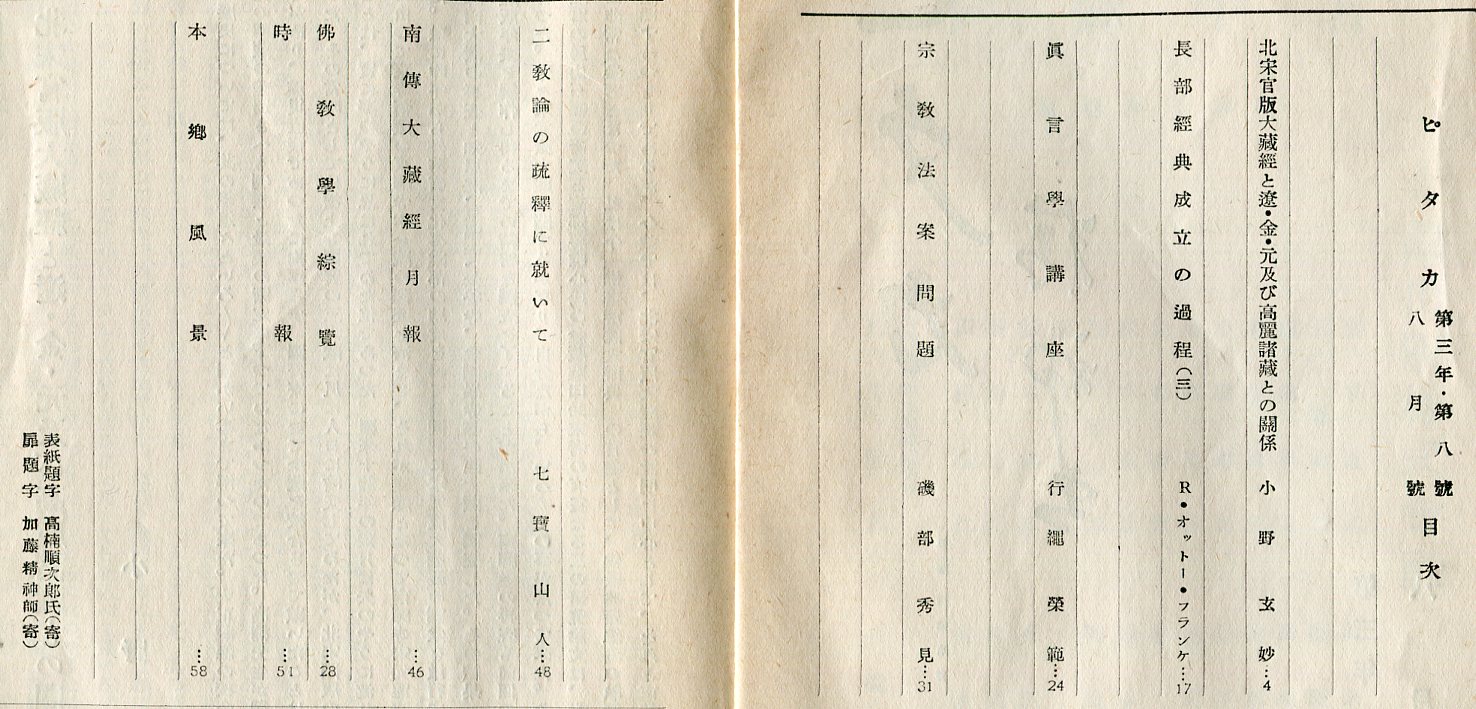 ピタカ 第三年・第八號 八月號 目次
北宋官版大藏經と遼・金・元及び高麗諸藏との關係 小野玄妙…4
長部經典成立の過程(三) R・オットー・フランケ…17
眞言學講座 行繩榮範…24
宗教法案問題 磯部秀見…31
二教論の疏釋に就いて 七寶山人…48
南傳大藏經月報…46
佛教學綜覽…28
時報…51
本鄕風景…58
表紙題字 高楠順次郎氏(寄)
扉題字 加藤精神師(寄)